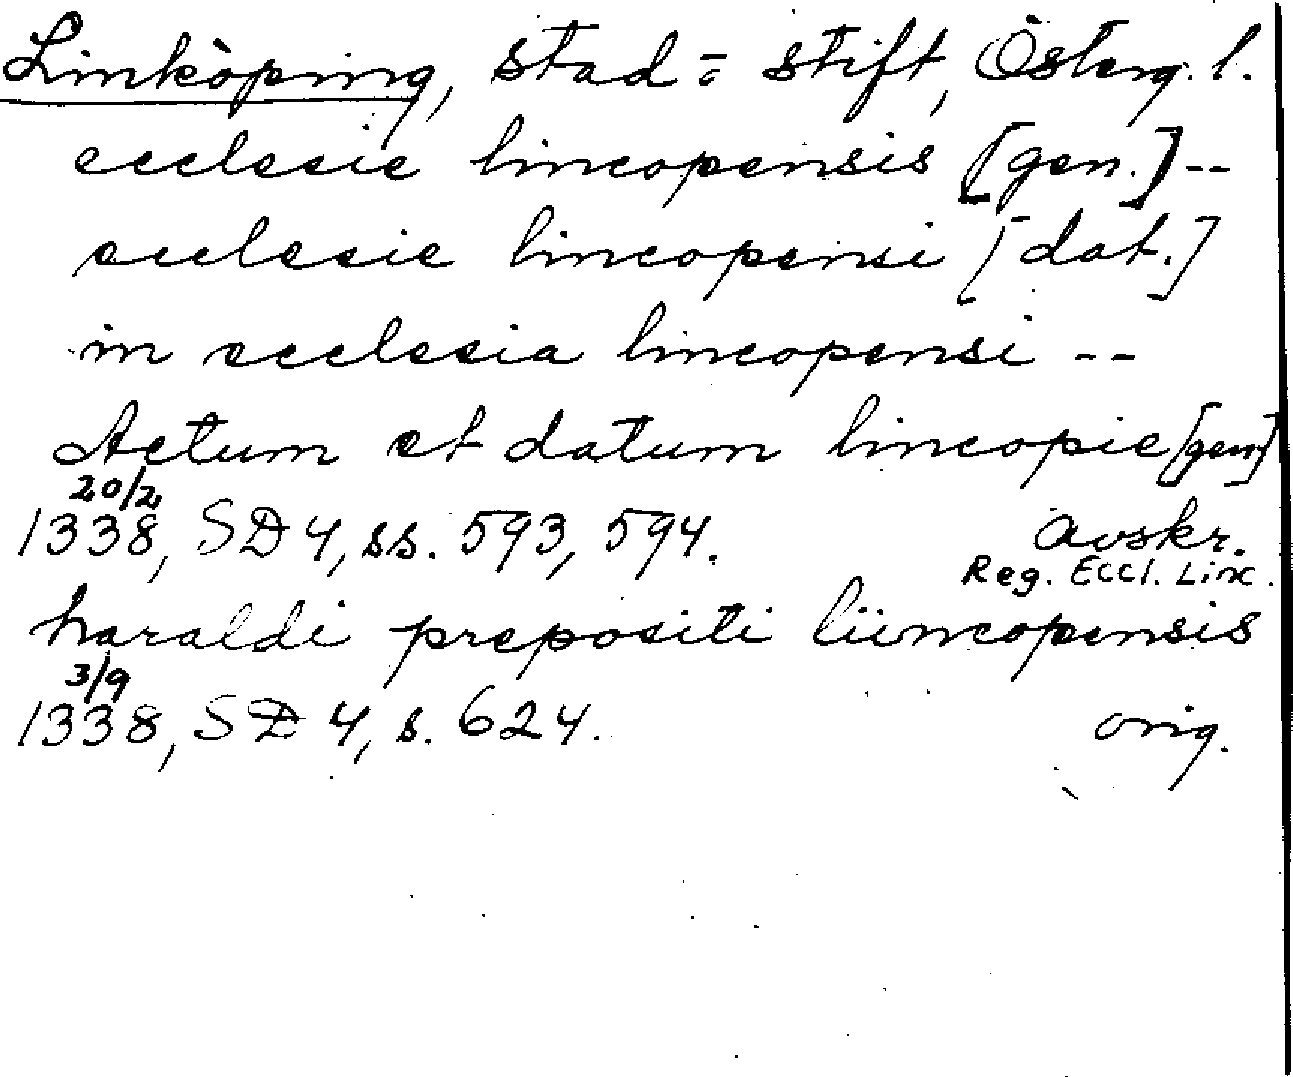 Linköping, stad = stift, Österg. l.
ecclesie lincopensis [gen.] --
ecclesie lincopensi [dat.]
in ecclesia lincopensi --
Actum et datum lincopie [gen]
20/2
1338, SD 4, ss. 593, 594. Avskr.
Reg. Eccl. Linc.
haraldi prepositi liincopensis
3/9
1338, SD 4, s. 624. orig.